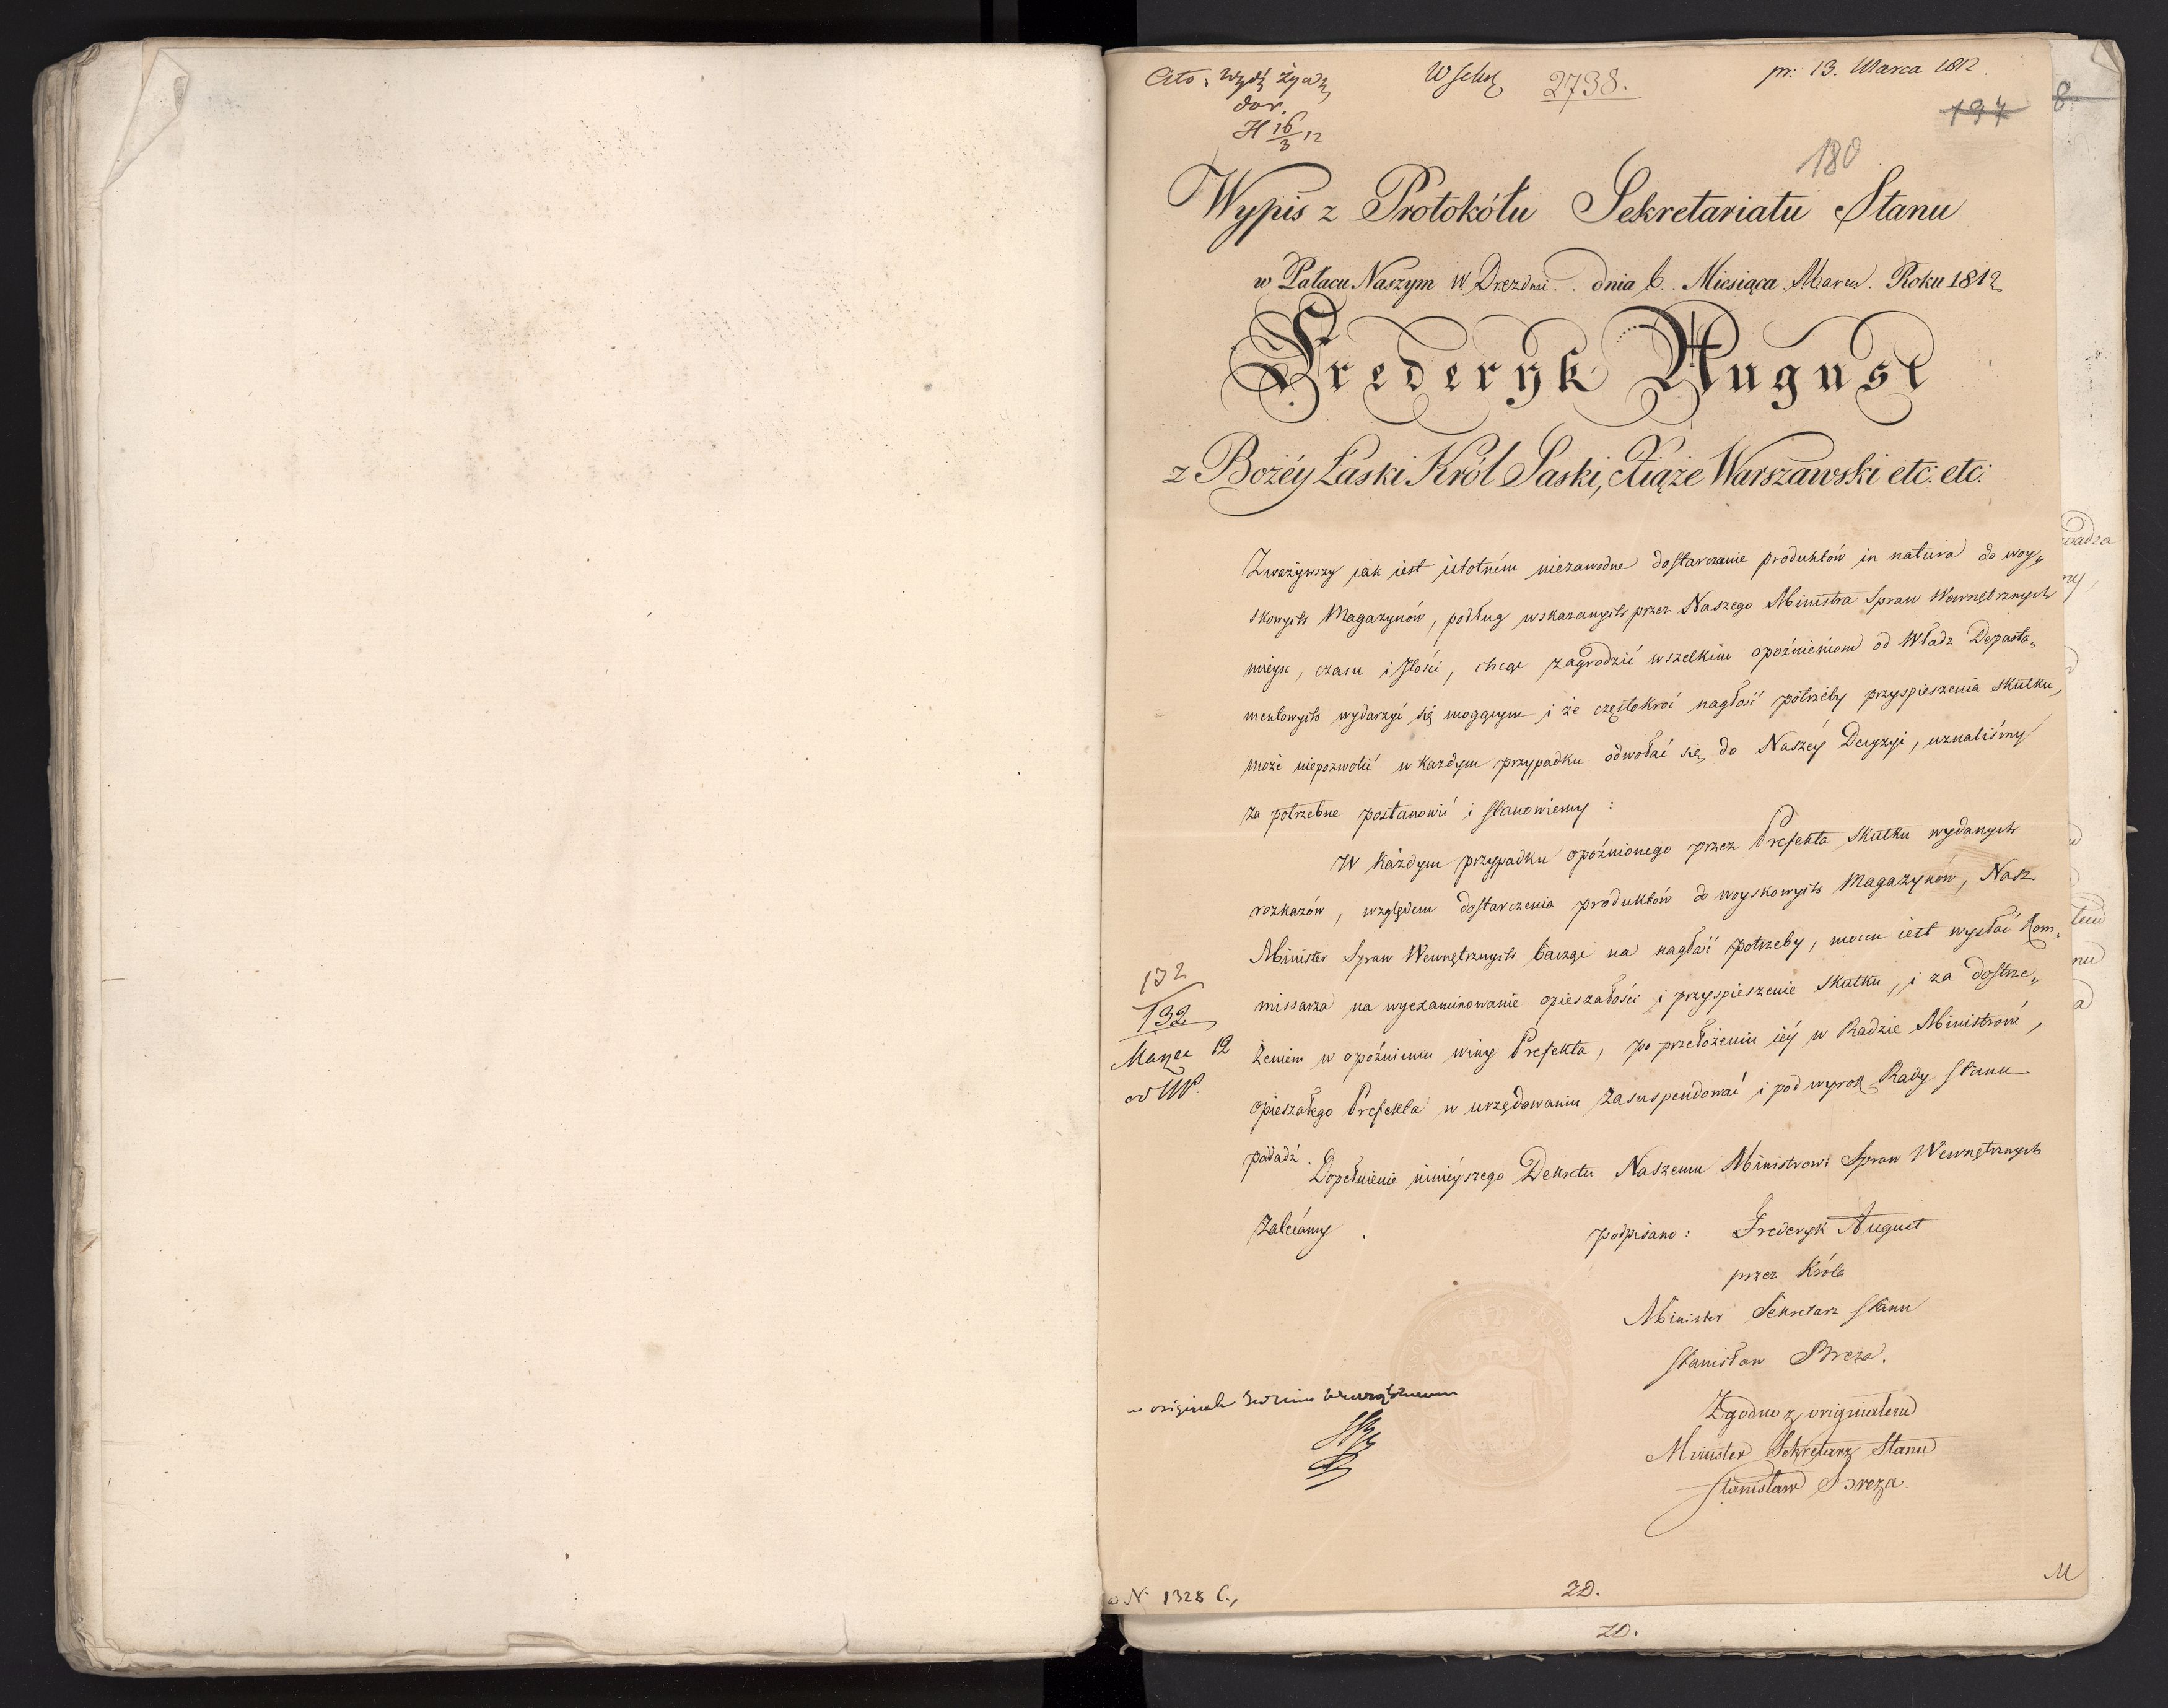 Cito
W
2738.
pr: 13. Marca 1812.
dor.
H 16/3 12
197
8
180
Wypis z Protokółu Sekretariatu Stanu
w Pałacu Naszym w Dreznie dnia 6. Miesiąca Marca. Roku 1812
Frederyk August
z Bożéy Łaski Król Saski, Xiąże Warszawski etc: etc:
Zważywszy iak iest istotném niezawodne dostarczanie produktów in natura do woy„
skowych Magazynów, podług wskazanych przez Naszego Ministra Spraw Wewnętrznych
mieysc, czasu i Ilości, chcąc zagrodzić wszelkim opoźnieniom od Władz Departa„
mentowych wydarzyć się mogącym i że częstokroć nagłość potrzeby przyspieszenia skutku,
może niepozwolić w każdym przypadku odwołać się do Naszéy Decyzyi, uznaliśmy
za potrzebne postanowić i stanowiemy :
W każdym przypadku opóźnionego przez Prefekta skutku wydanych
rozkazów, względem dostarczenia produktów do woyskowych Magazynów, Nasz
Minister Spraw Wewnętrznych bacząc na nagłość potrzeby, mocen iest wysłać Kom„
missarza na wyexaminowanie opieszałości i przyspieszenie skutku, i za dostrze„
żeniem w opóźnieniu winy Prefekta, po przełożeniu iéy w Radzie Ministrów,
opieszałego Prefekta w urzędowaniu zasuspendować i pod wyrok Rady Stanu
poddadź.
Dopełnienie ninieyszego Dekretu Naszemu Ministrowi Spraw Wewnętrznych
zalecamy.
132
132
Marzec 12
od MW.
podpisano: Frederyk August
przez Króla
Minister Sekretarz Stanu
Stanisław Breza.
w originale
Zgodno z originałem
Minister Sekretarz Stanu
Stanisław Breza.
N. 1328 C.,
2D.
M
2D.